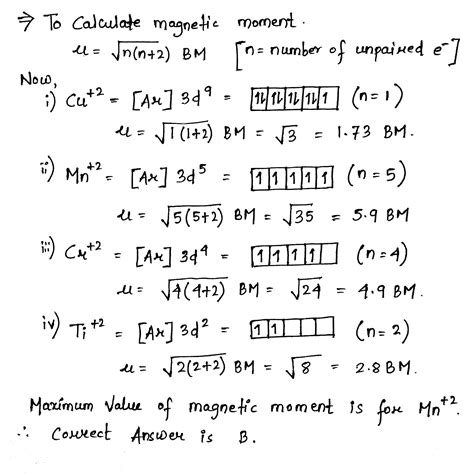 ⇒ To Calculate magnetic moment.
μ = √n(n+2) BM [n = number of unpaired e⁻]
Now,
i) Cu⁺² = [Ar] 3d⁹ = [1l|1l|1l|1l|1] (n=1)
μ = √1(1+2) BM = √3 = 1.73 BM.
ii) Mn⁺² = [Ar] 3d⁵ = [1|1|1|1|1] (n=5)
μ = √5(5+2) BM = √35 = 5.9 BM
iii) Cr⁺² = [Ar] 3d⁴ = [1|1|1|1| ] (n=4)
μ = √4(4+2) BM = √24 = 4.9 BM.
iv) Ti⁺² = [Ar] 3d² = [1|1| | | ] (n=2)
μ = √2(2+2) BM = √8 = 2.8 BM.
Maximum Value of magnetic moment is for Mn⁺².
∴ Correct Answer is B.